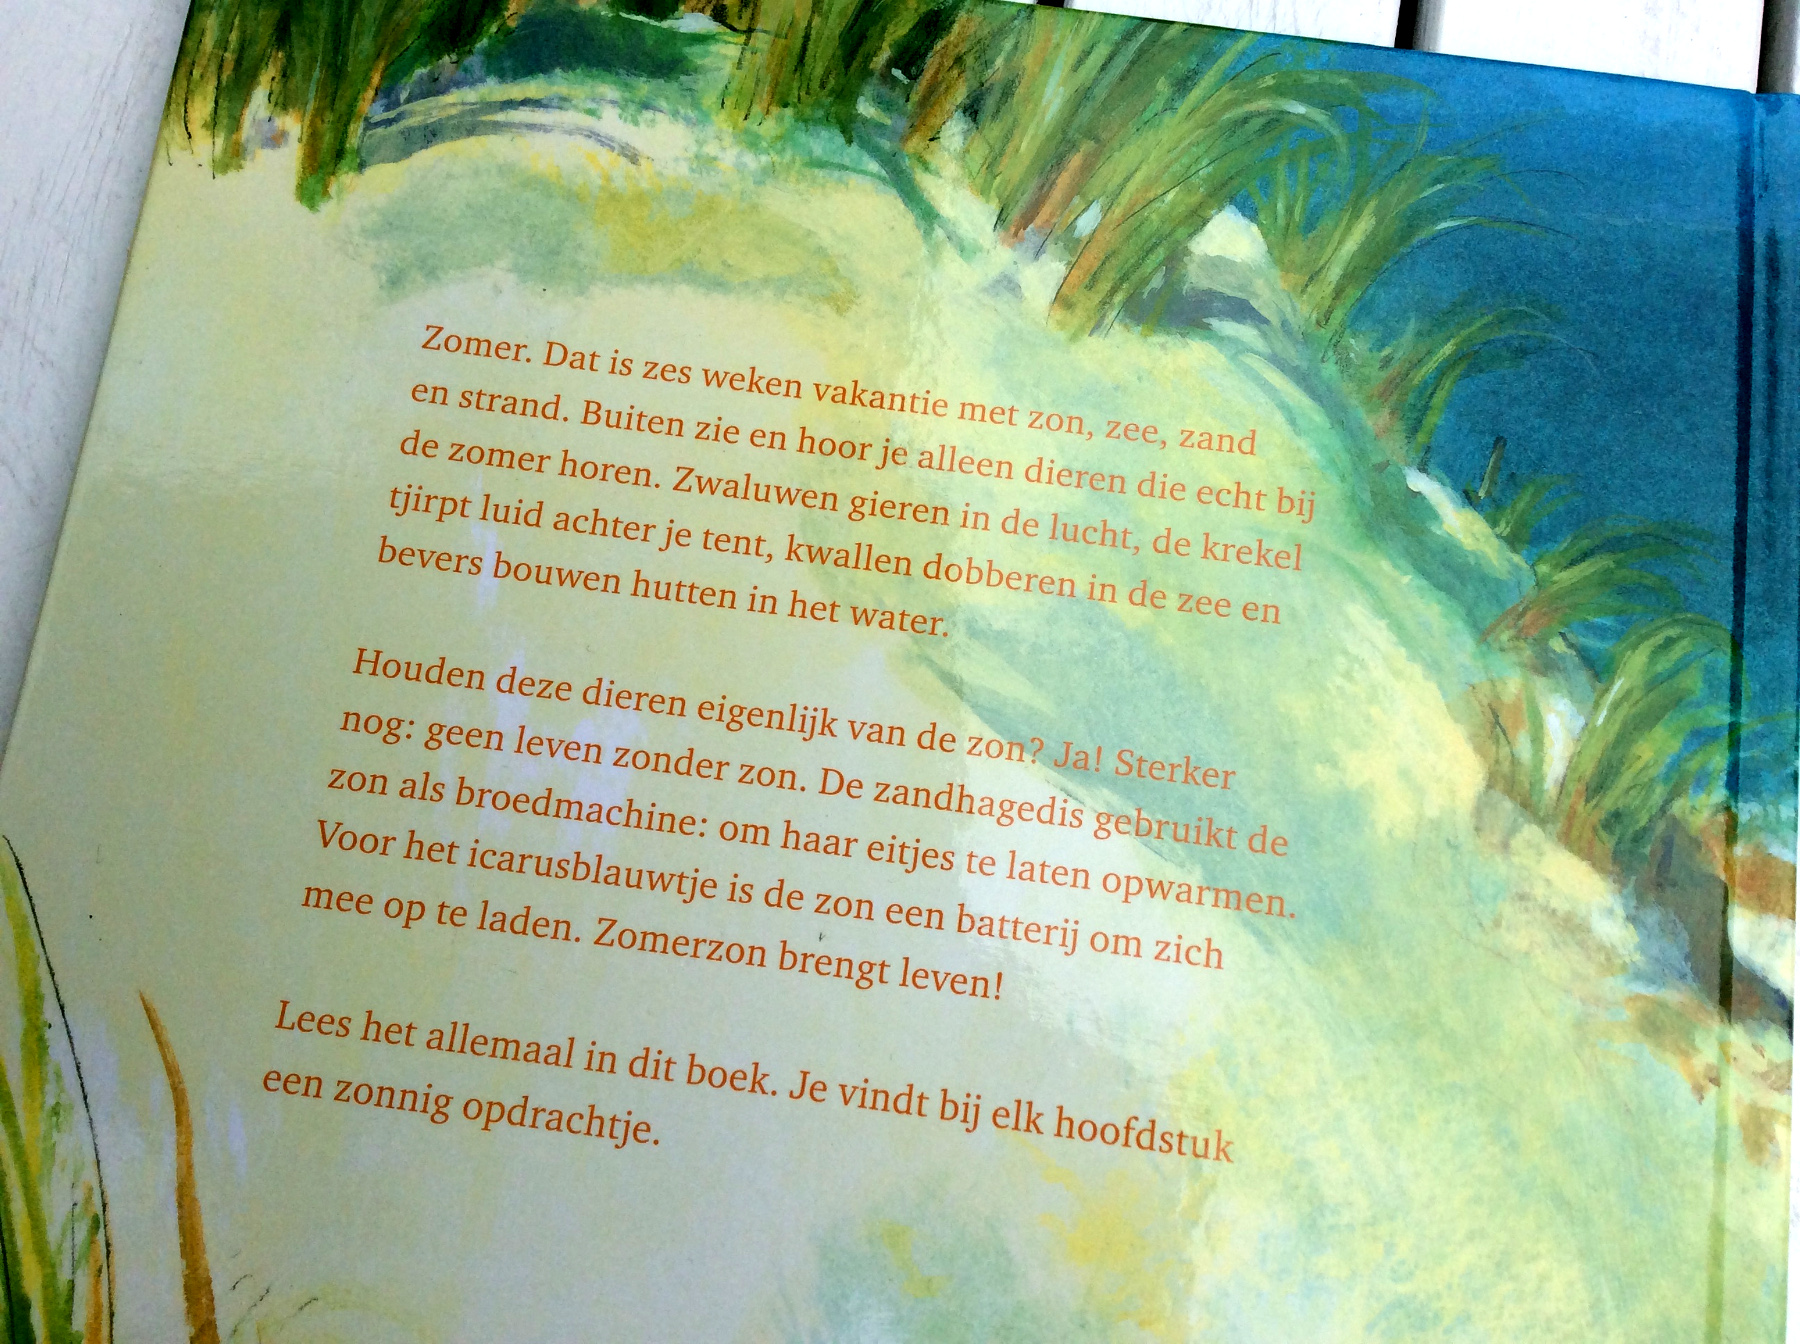 Zomer. Dat is zes weken vakantie met zon, zee, zand
en strand. Buiten zie en hoor je alleen dieren die echt bij
de zomer horen. Zwaluwen gieren in de lucht, de krekel
tjirpt luid achter je tent, kwallen dobberen in de zee en
bevers bouwen hutten in het water.
Houden deze dieren eigenlijk van de zon? Ja! Sterker
nog: geen leven zonder zon. De zandhagedis gebruikt de
zon als broedmachine: om haar eitjes te laten opwarmen.
Voor het icarusblauwtje is de zon een batterij om zich
mee op te laden. Zomerzon brengt leven!
Lees het allemaal in dit boek. Je vindt bij elk hoofdstuk
een zonnig opdrachtje.